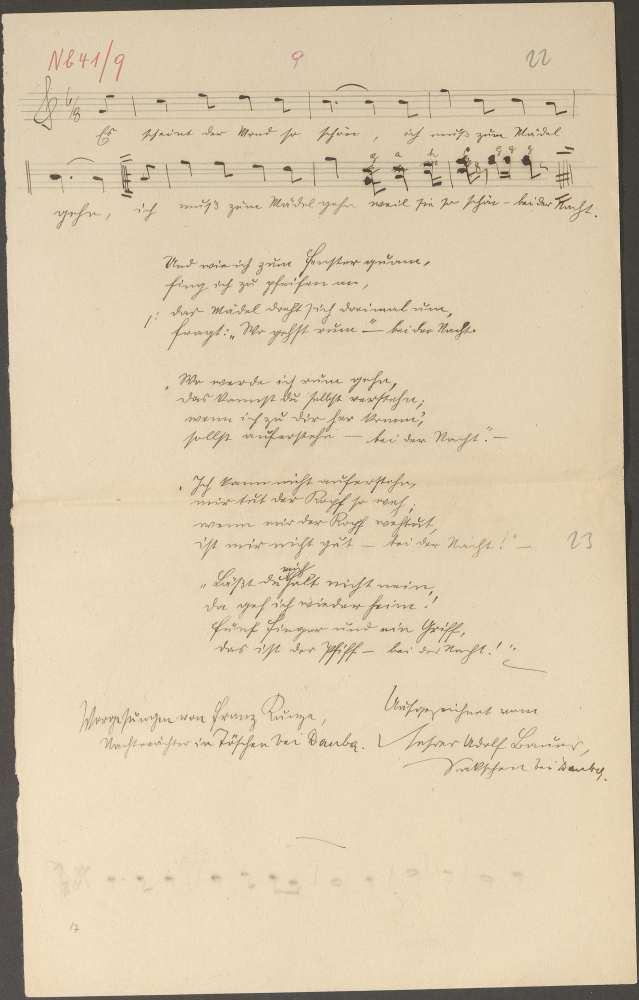 Nb41/9 9 22
Es scheint der Mond so schön, ich muß zum Mädel
g a h g g g
gehn, ich muß zum Mädel gehn weil sie so schön - bei der Nacht.
Und wie ich zum Fenster quam,
fing ich zu pfeifen an,
/: das Mädel dreht sich dreimal um,
fragt: „Wo gehst rum" - bei der Nacht.
„Wo werde ich rum gehn,
das kannst du selbst verstehn;
wenn ich zu Dir her komm,
sollst auferstehn - bei der Nacht." -
„Ich kann nicht auferstehn,
mir tut der Kopf so weh,
wenn mir der Kopf wehtut,
ist mir nicht gut - bei der Nacht!" - 23
„Läßt du mich halt nicht nein,
da geh ich wieder heim!
Fünf Finger und ein Griff,
das ist der Pfiff - bei der Nacht!"
Vorgesungen von Franz Kunze,
Nachtwächter in Töschen bei Dauba.
Aufgezeichnet vom
Lehrer Adolf Bauer,
bei Dauba.
17